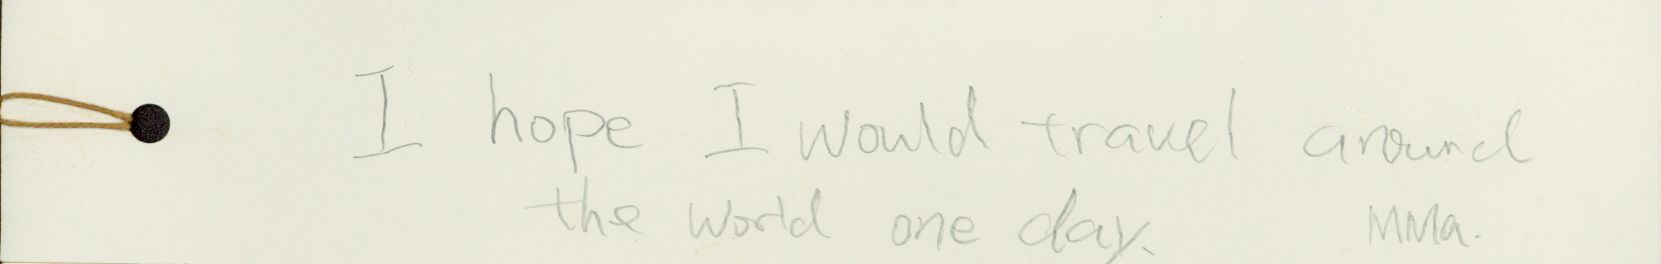 I hope I would travel around
the world one day.
MMa.